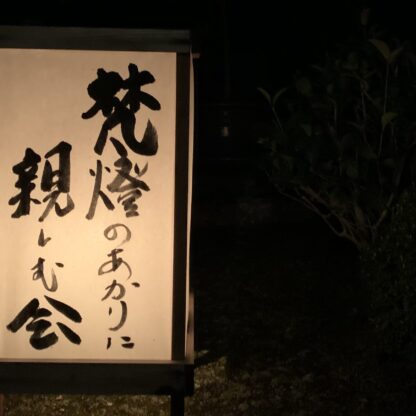 梵燈のあかりに
親しむ会